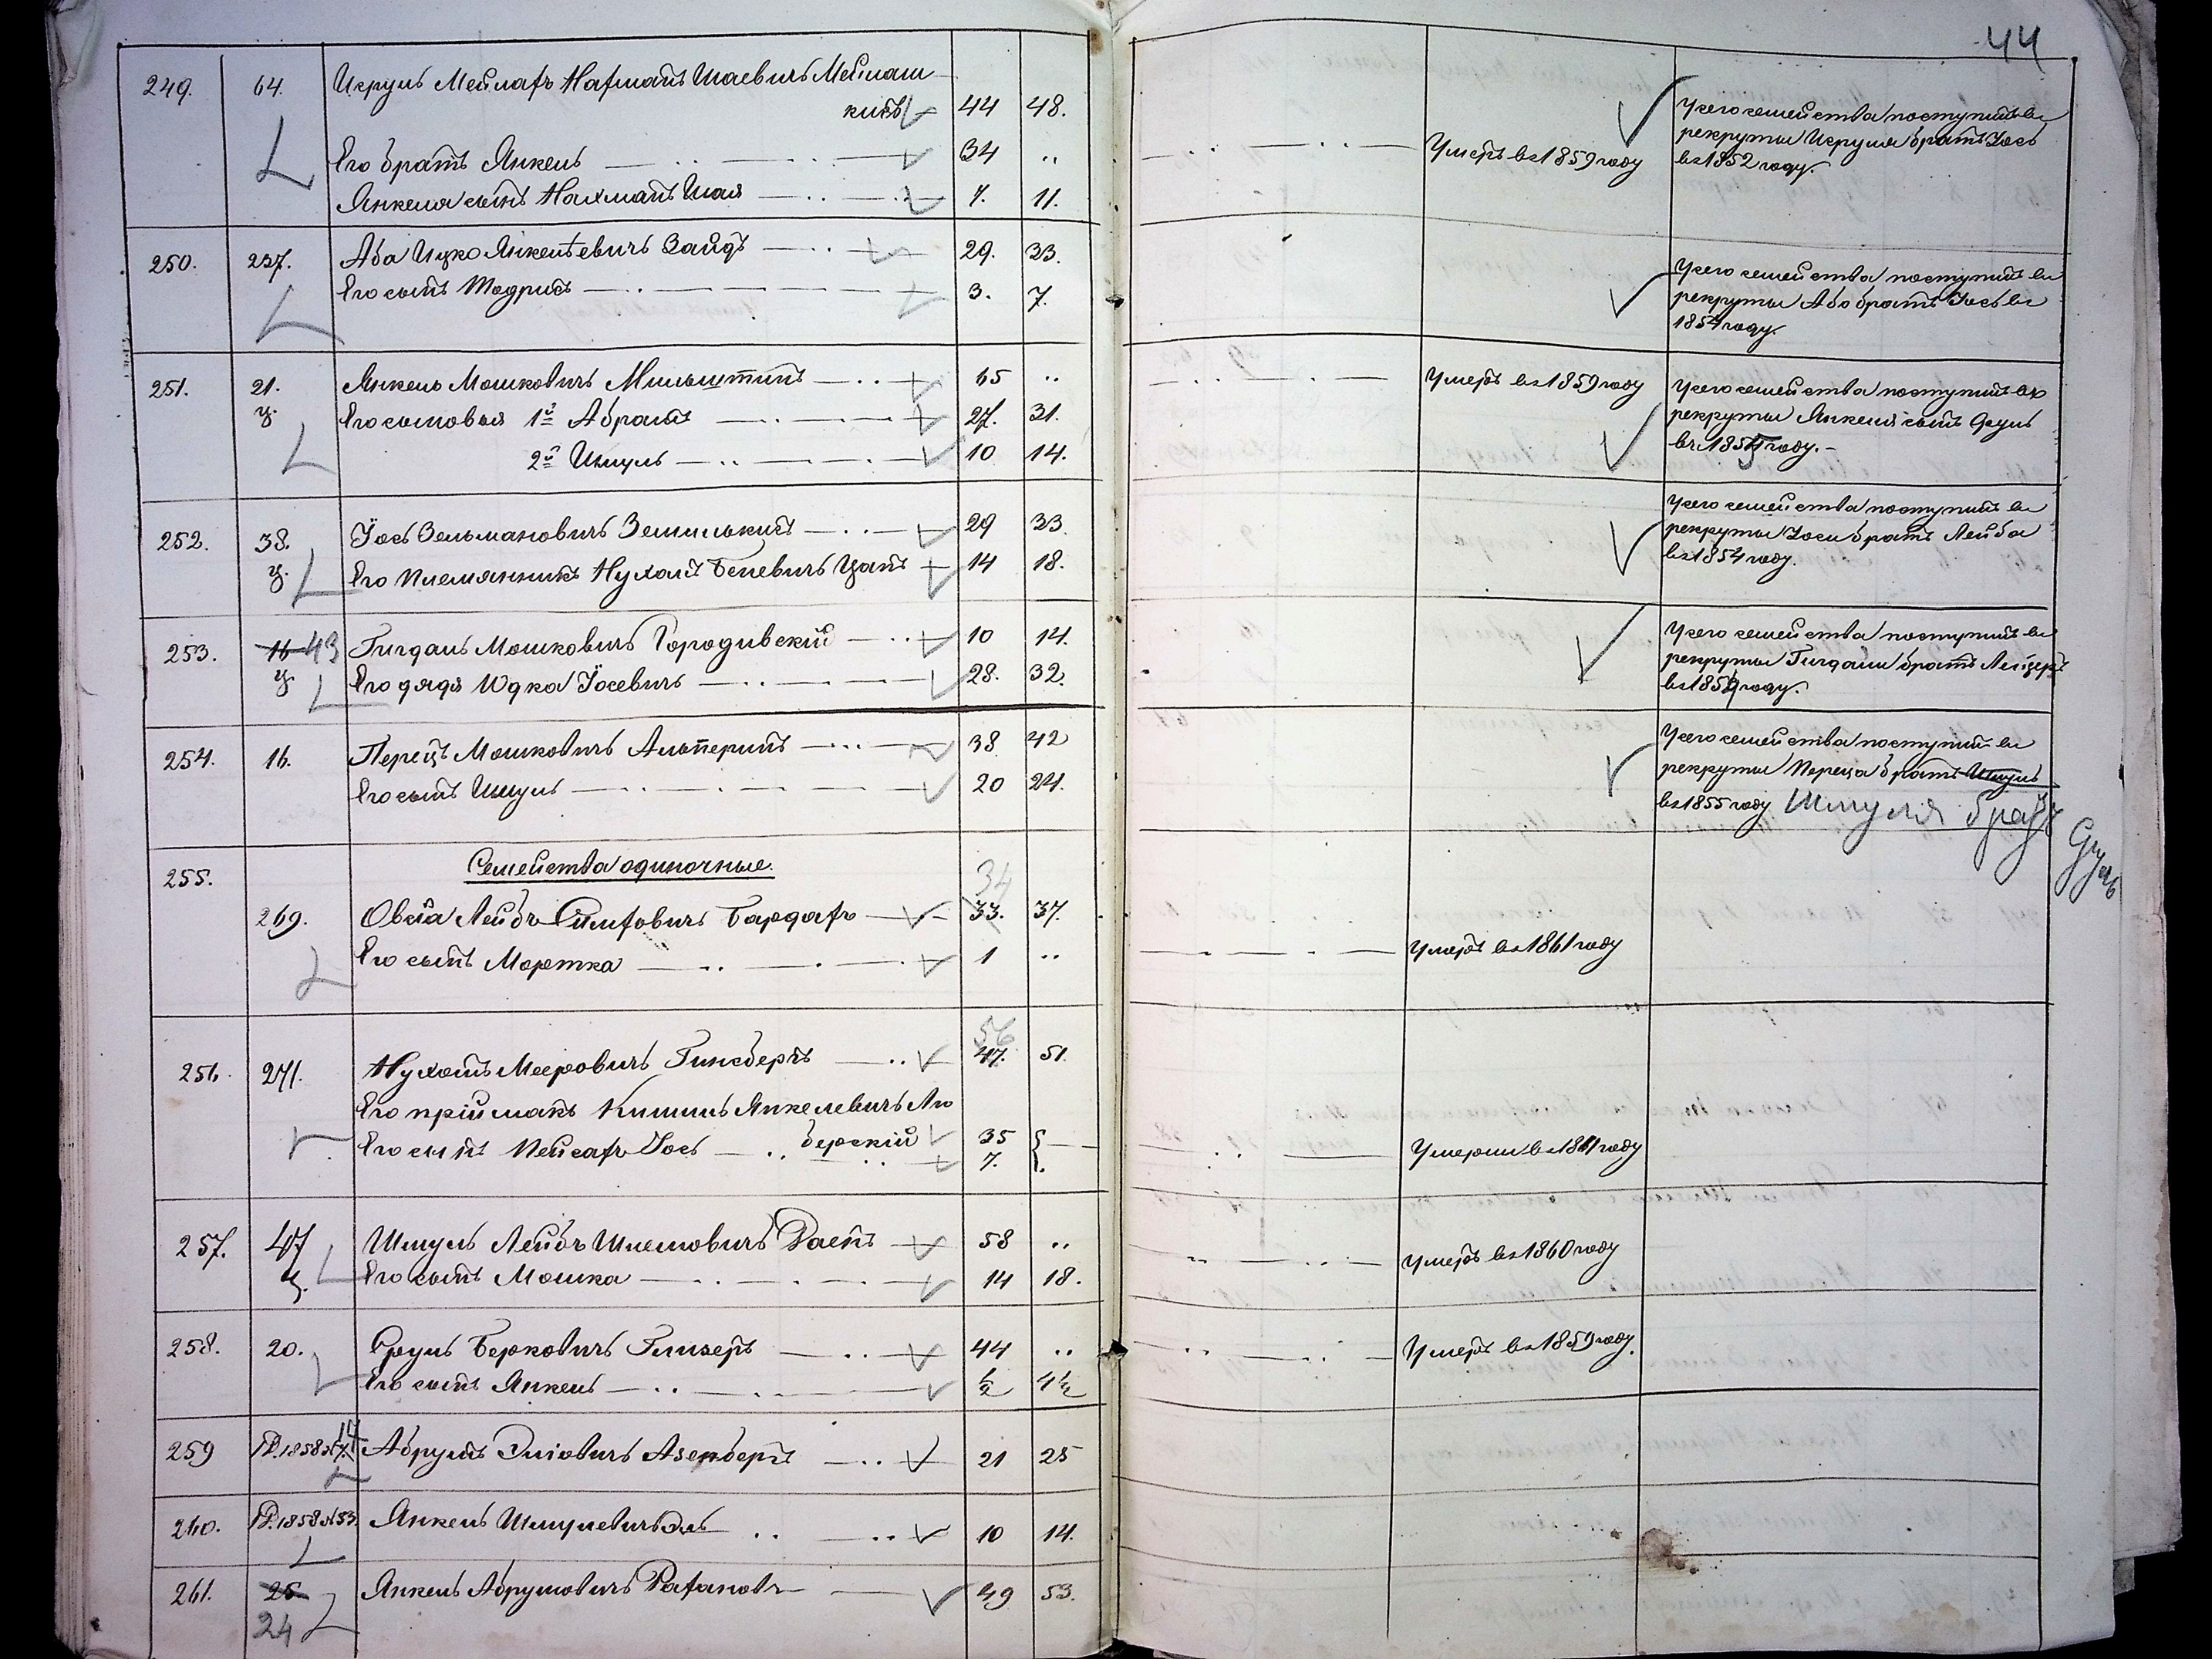 44
249. 64. Исруль Мейлахъ Нахманъ Шаевичъ Меймаш
кисъ 44 48.
Его братъ Янкель 34 „ Умеръ въ 1859 году
Янкеля сынъ Нахманъ Шая 7. 11.
У сего семейства поступилъ въ
рекруты Исруля братъ Іось
въ 1852 году.
250. 237. Аба Ицко Янкелевичъ Зайдъ 29. 33.
Его сынъ Тодрисъ 3. 7.
У сего семейства поступилъ въ
рекруты Аба братъ Іось въ
1854 году.
251. 21. Янкель Мошковичъ Мильштинъ 65 „ Умеръ въ 1859 году
ц. Его сыновья 1й Абрамъ 27. 31.
2й Шмуль 10 14.
У сего семейства поступилъ въ
рекруты Янкеля сынъ Сруль
въ 1855 году.
252. 38. Іось Зельмановичъ Земилькисъ 29 33
ц. Его племянникъ Нухимъ Беневичъ Цапъ 14 18.
У сего семейства поступилъ въ
рекруты Іося братъ Лейба
въ 1854 году.
253. 16 43 Гигдаль Мошковичъ Городивскій 10 14.
ц. Его дядя Юдка Іосевичъ 28. 32.
У сего семейства поступилъ въ
рекруты Гигдали братъ Лейзеръ
въ 1854 году.
254. 16. Перецъ Мошковичъ Альперинъ 38 42
Его сынъ Шмуль 20 24.
У сего семейства поступилъ въ
рекруты Переца братъ Шмуль
въ 1855 году Шмуля братъ
Сруль
255. Семейства одиночные.
34
269. Овсѣй Лейбъ Симховичъ Бардахъ 33. 37.
Его сынъ Мортка 1 „ Умеръ въ 1861 году
56
256. 271. Нухимъ Мееровичъ Гинсбергъ 47. 51.
Его пріймакъ Кишиль Янкелевичъ Лю
берскій 35
Его сынъ Пейсахъ Іось 7. Умерли въ 1861 году
257. 47 Шмуль Лейбъ Шлемовичъ Раенъ 58 „ Умеръ въ 1860 году
ц. Его сынъ Мошка 14 18.
258. 20. Сруль Берковичъ Глизеръ 44 „ Умеръ въ 1859 году.
Его сынъ Янкель 1/2 4 1/2
259 Р. 1858 № 14 Абрумъ Эліовичъ Азенбергъ 21 25
260. Р. 1858 № 53. Янкель Шмулевичъ Эль 10 14.
261. 25 Янкель Абрумовичъ Рахановъ 49 53.
24